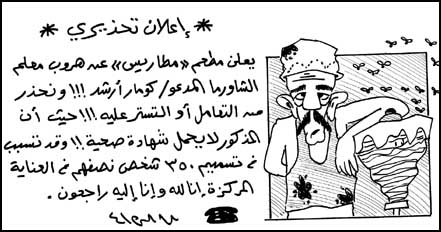 * إعلان تحذيري *
يعلن مطعم «مطاريس» عن هروب معلم
الشاورما المدعو/ كومار أرشد !!! ونحذر
من التعامل أو التستر عليه !!! حيث أن
المذكور لا يحمل شهادة صحية !! وقد تسبب
في تسميم ٣٥٠ شخص نصفهم في العناية
المركزة. إنا لله وإنا إليه راجعون.